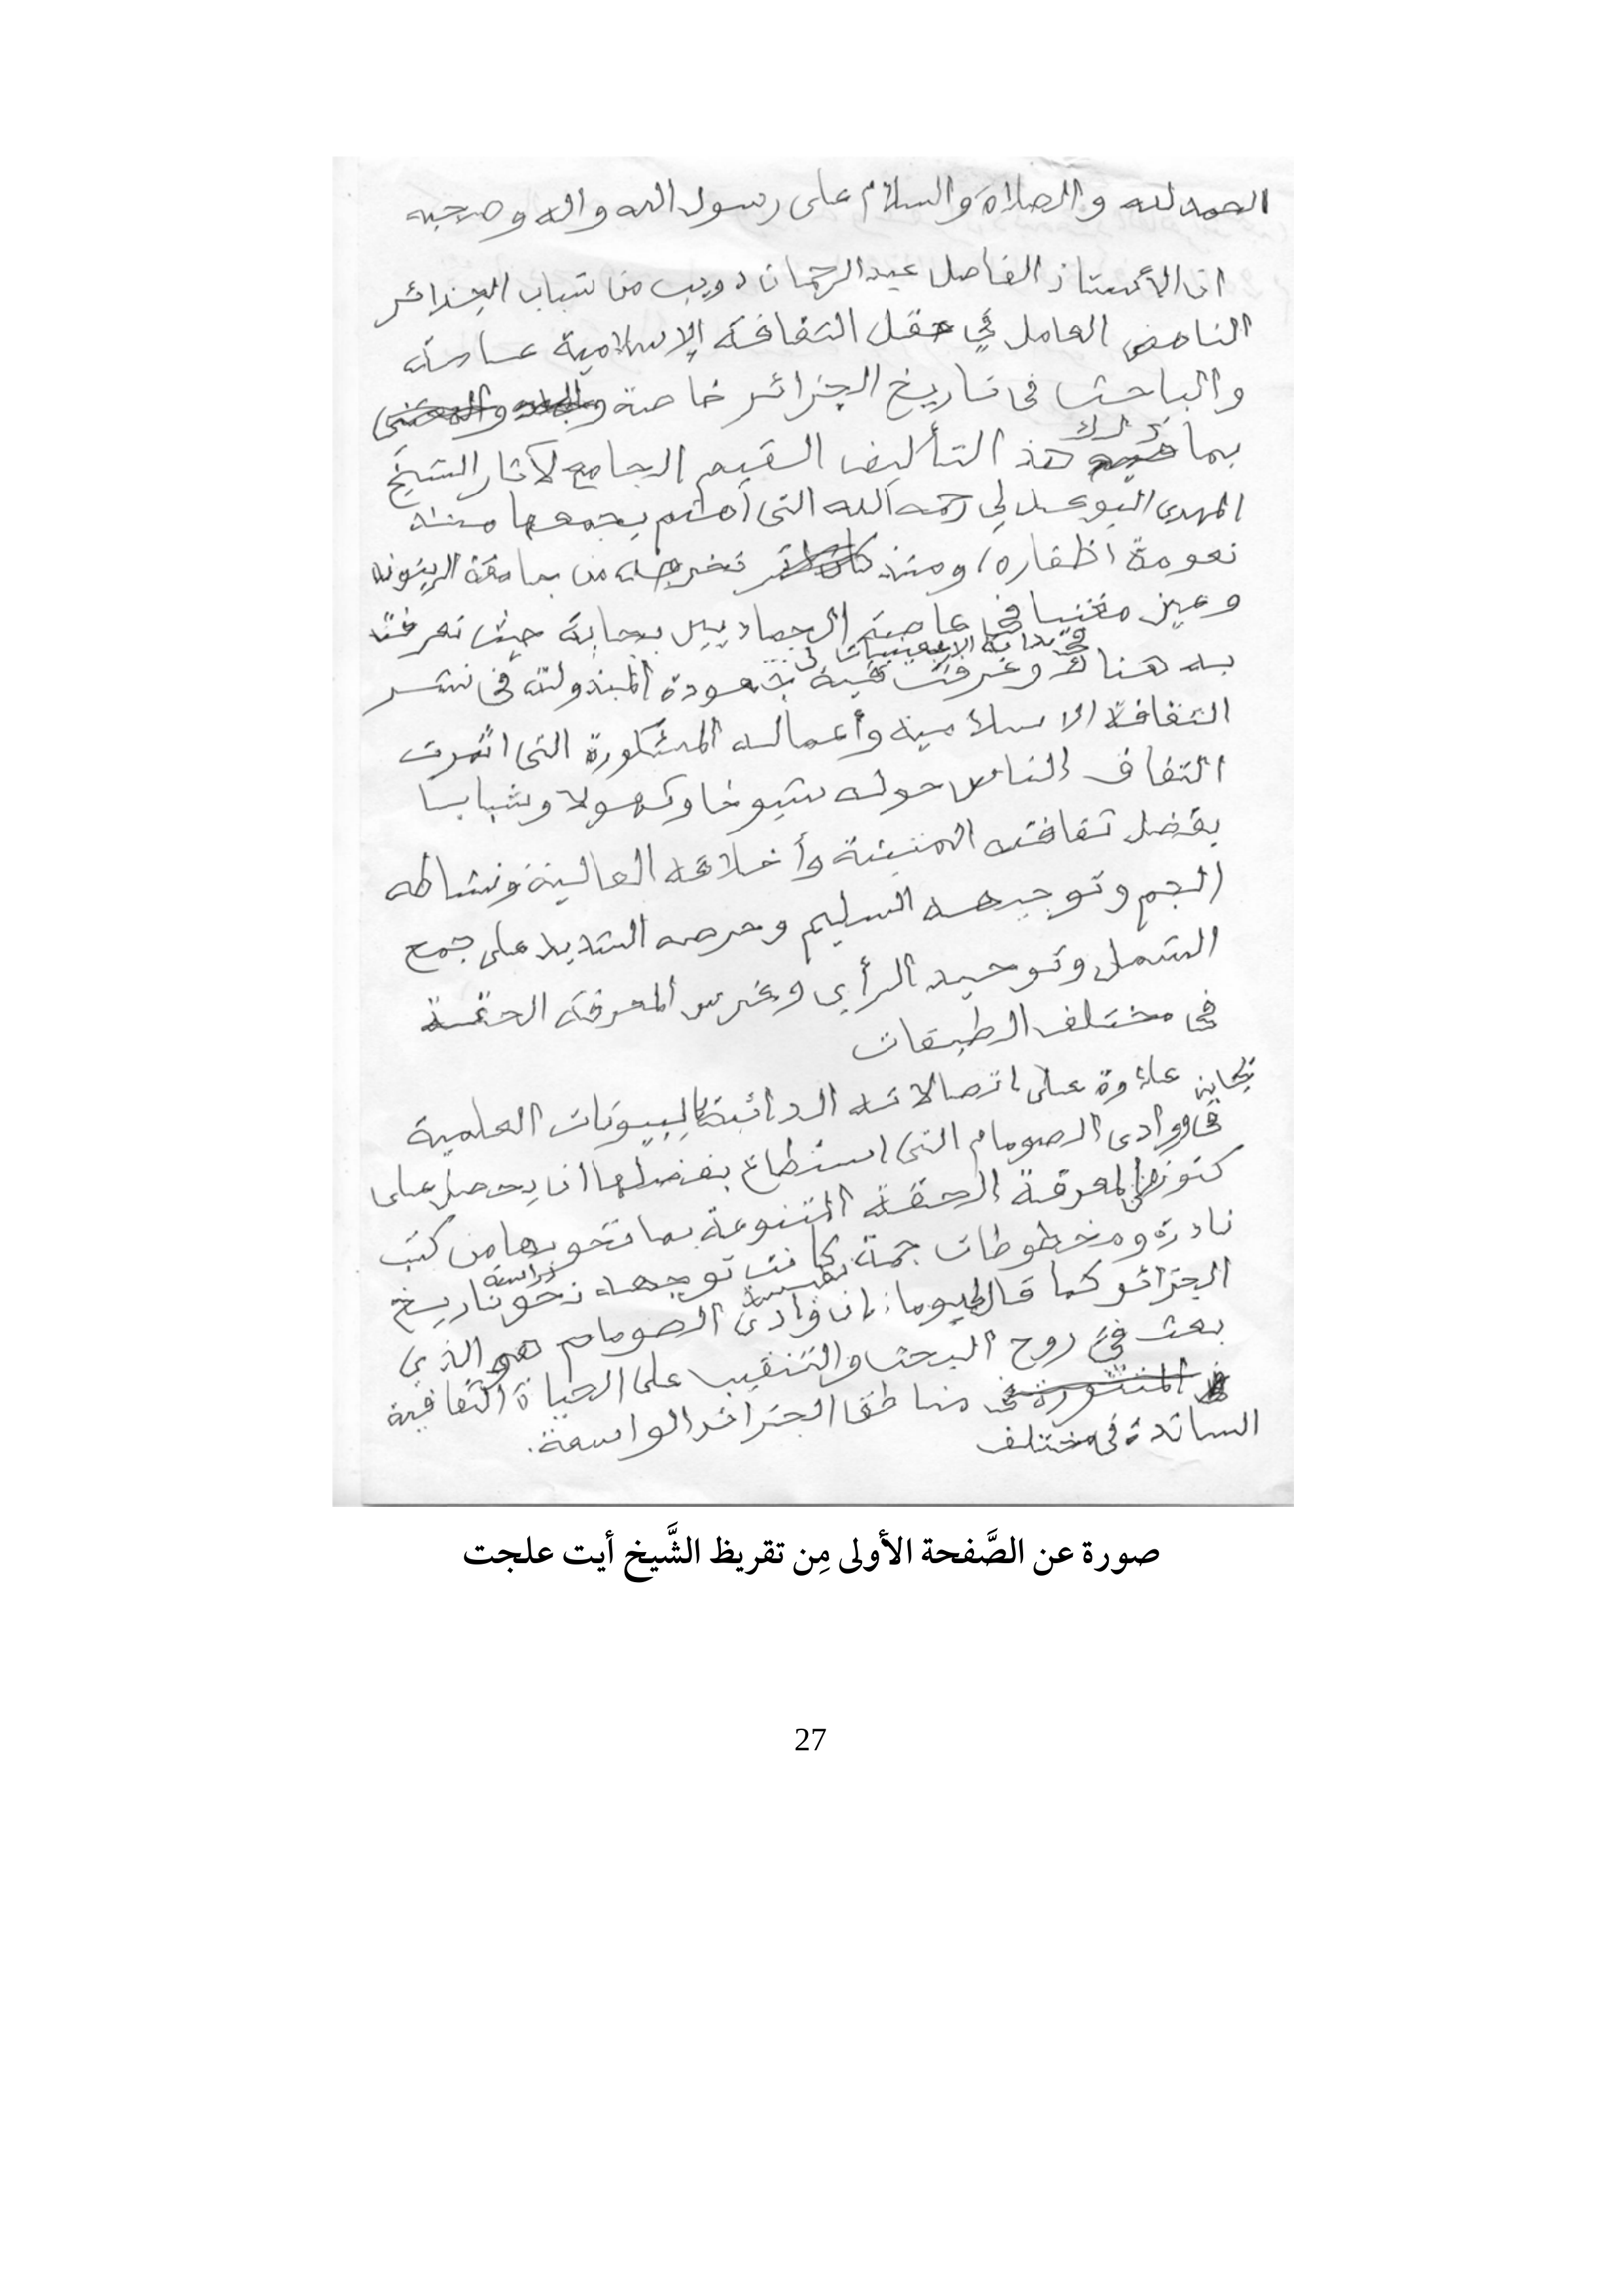 الحمد لله والصلاة والسلام على رسول الله واله وصحبه
ان الأستاذ الفاضل عبد الرحمان دويب من شباب الجزائر
الناهض العامل في حقل الثقافة الإسلامية عامة
والباحث في تاريخ الجزائر خاصة
بما هذ التأليف القيم الجامع لآثار الشيخ
المهدي البوعبدلي رحمه الله التي اهتم بجمعها منذ
نعومة اظفاره، ومنذ تخرجه من جامعة الزيتونة
وعين مفتيا في عاصمة الحماديين بجاية حيث تعرفت
في بداية الاربعينيات
به هناك وعرفت فيه جهوده المبذولة في نشر
الثقافة الاسلامية وأعماله المشكورة التي اثمرت
التفاف الناس حوله شيوخا وكهولا وشبابا
بفضل ثقافته المتينة وأخلاقه العالية ونشاطه
الجم وتوجيهه السليم وحرصه الشديد على جمع
الشمل وتوحيد الرأي وغرس المعرفة الحقة
في مختلف الطبقات
علاوة على اتصالاته الدائبة بالبيوتات العلمية
في وادي الصومام التي استطاع بفضلها ان يحصل على
كنوز المعرفة الحقة المتنوعة بما تحويها من كتب
نادرة ومخطوطات جمة كانت توجهه نحو دراسة تاريخ
الجزائر كما قال لي يوما: ان وادي الصومام هو الذي
بعث في روح البحث والتنقيب على الحياة الثقافية
السائدة في مختلف مناطق الجزائر الواسعة.
صورة عن الصَّفحة الأولى مِن تقريظ الشَّيخ أيت علجت
27